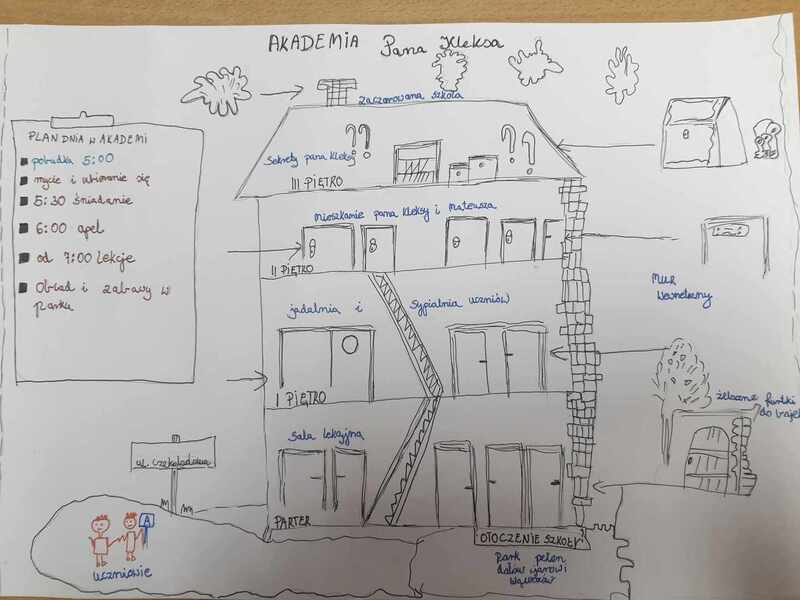 AKADEMIA Pana Kleksa
zaczarowana szkoła
PLAN DNIA W AKADEMI
pobudka 5:00
mycie i ubieranie się
5:30 śniadanie
6:00 apel
od 7:00 lekcje
Obiad i zabawy w
Parku
Sekrety pana Kleksy
??
??
III PIĘTRO
Mieszkanie pana Kleksy i Mateusza
II PIĘTRO
jadalnia i
Sypialnia uczniów
I PIĘTRO
Sala lekcyjna
PARTER
MUR
wewnetrzny
żelazne furtki
do bajek
ul. czekoladowa
A
uczniowie
OTOCZENIE SZKOŁY
Park pełen